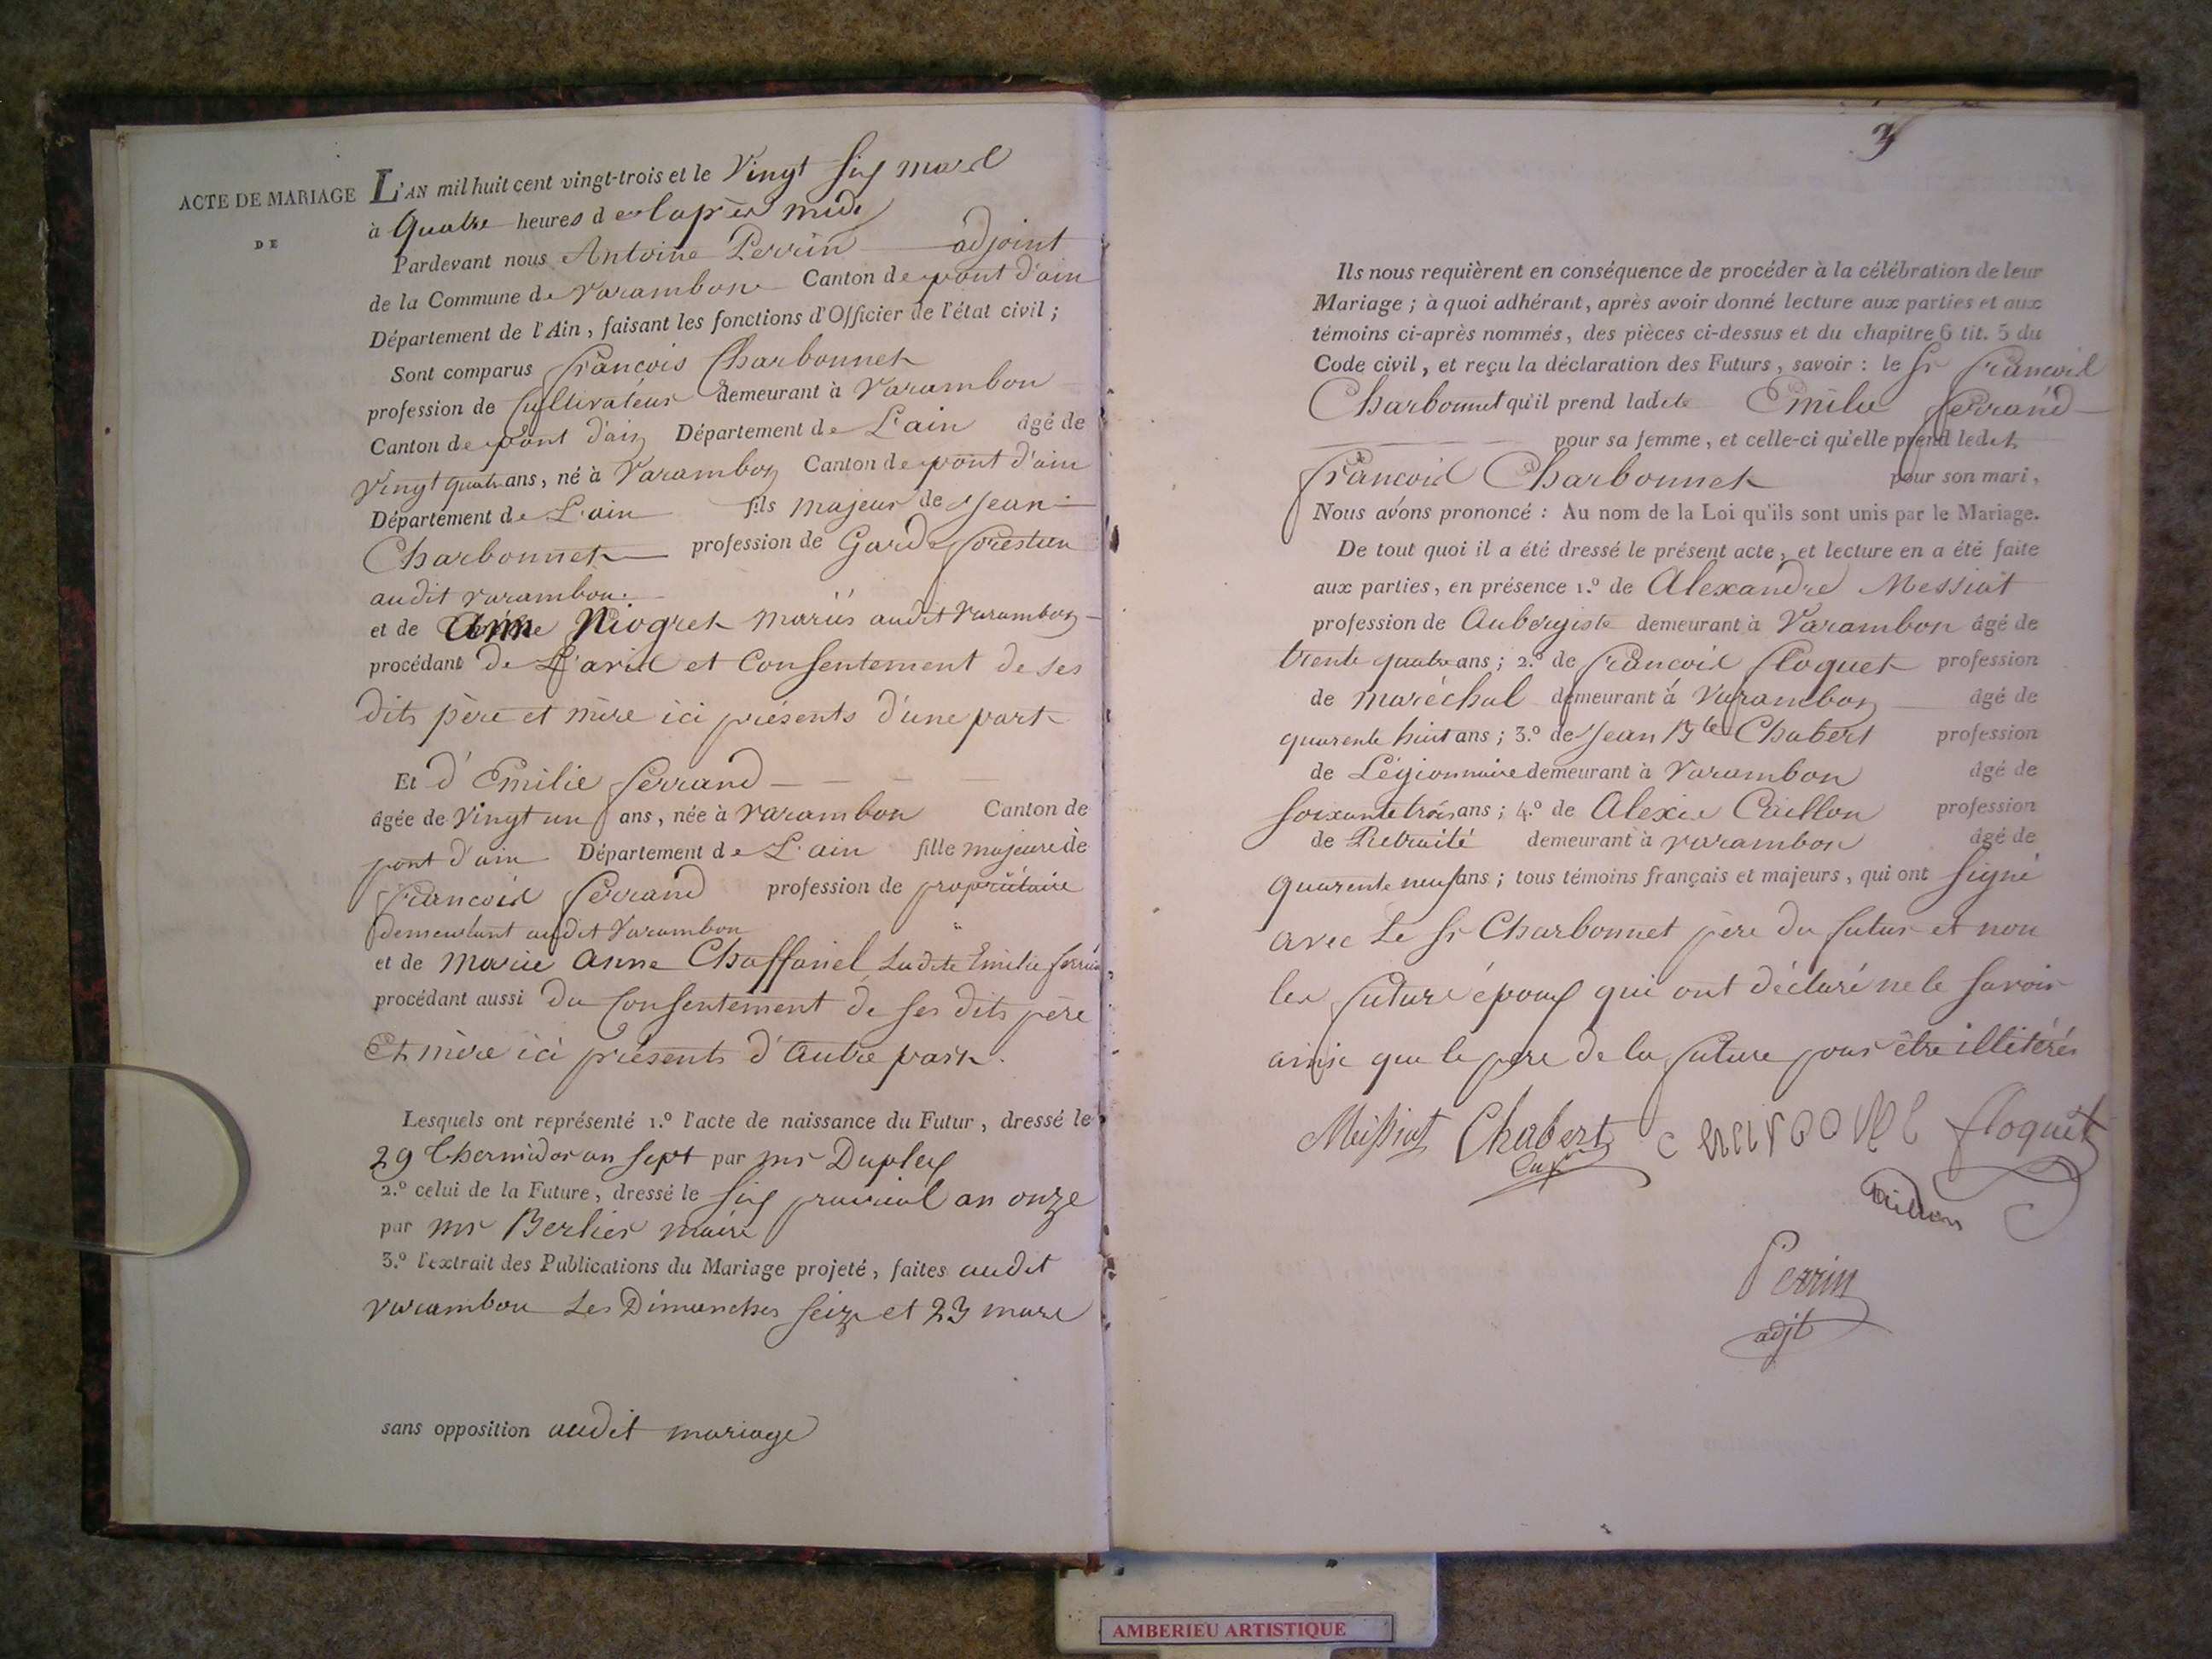 ACTE DE MARIAGE
DE
L'AN mil huit cent vingt-trois et le Vingt Six mars
à Quatre heures de laprès midi
Pardevant nous Antoine Perrin adjoint
de la Commune de Varambon Canton de pont d'ain
Département de l'Ain, faisant les fonctions d'Officier de l'état civil;
Sont comparus francois Charbonnet
profession de Cultivateur demeurant à Varambon
Canton de pont d'ain Département de L'ain âgé de
Vingt quatre ans, né à Varambon Canton de pont d'ain
Département de L'ain fils majeur de Jean
Charbonnet profession de Garde forestier
audit varambon.
et de Niogret mariés audit Varambon
procédant de L'avis et Consentement de ses
dits père et mère ici présents d'une part
Et d'Emilie ferrand
âgée de Vingt un ans, née à varambon Canton de
pont d'ain Département de L'ain fille majeure de
francois ferrand profession de propriétaire
demeurant audit Varambon
et de marie anne Chaffanel Ladite Emilie ferrand
procédant aussi du Consentement de ses dits père
Et mère ici présents d'autre part.
Lesquels ont représenté 1.º l'acte de naissance du Futur, dressé le
29 thermidor an sept par mr Dupley
2.º celui de la Future, dressé le six prairial an onze
par mr Berlier maire
3.º l'extrait des Publications du Mariage projeté, faites audit
varambon Les Dimanches seize et 23 mars
sans opposition audit mariage
3
Ils nous requièrent en conséquence de procéder à la célébration de leur
Mariage; à quoi adhérant, après avoir donné lecture aux parties et aux
témoins ci-après nommés, des pièces ci-dessus et du chapitre 6 tit. 5 du
Code civil, et reçu la déclaration des Futurs, savoir: le Sr francois
Charbonnet qu'il prend ladite Emilie ferrand
pour sa femme, et celle-ci qu'elle prend ledit
francois Charbonnet pour son mari,
Nous avons prononcé: Au nom de la Loi qu'ils sont unis par le Mariage.
De tout quoi il a été dressé le présent acte, et lecture en a été faite
aux parties, en présence 1.º de Alexandre Messiat
profession de Aubergiste demeurant à Varambon âgé de
trente quatre ans; 2.º de francois floquet profession
de maréchal demeurant à Varambon âgé de
quarente huit ans; 3.º de Jean Bte Chabert profession
de Légionnaire demeurant à Varambon âgé de
soixante trois ans; 4.º de Alexis Caillon profession
de Retraité demeurant à varambon âgé de
quarente neuf ans; tous témoins français et majeurs, qui ont signé
avec Le Sr Charbonnet père du futur et non
les futurs époux qui ont déclaré ne le savoir
ainsi que le père de la future pour être illitérés
Meissiat Chabert floquet
Perrin
adjt
AMBERIEU ARTISTIQUE